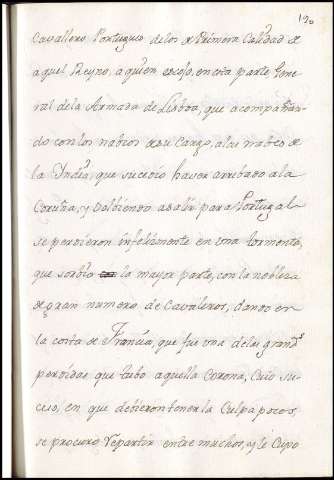 190
Cavallero Portugues delos de Primera Calidad de
aquel Reyno, a quien escojo, en esta parte Gene-
ral dela Armada de Lisboa, que acompañan-
do con los nabios de su Cargo, alas naves de
la India, que sucedio haver arribado ala
Coruña, y bolbiendo asalir para Portugal
se perdieron infelizmente en una tormenta,
que sorbio la mayor parte, con la nobleza
de gran numero de Cavaleros, dando en
la costa de Francia, que fue una delas grands
perdidas que tubo aquella Corona, Cuio su-
ceso, en que debieron tener la Culpa pocos,
se procuro repartir entre muchos, y le Cupo